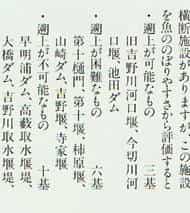 横断施設がありますが、この施設
を魚ののぼりやすさから評価すると
・遡上が可能なもの　三基
旧吉野川河口堰、今切川河
口堰、池田ダム
・遡上が困難なもの　六基
第十樋門、第十堰、柿原堰、
山崎ダム、吉野堰、寺家堰
・遡上が不可能なもの　十基
早明浦ダム、高薮取水堰堤、
大橋ダム、吉野川取水堰堤、